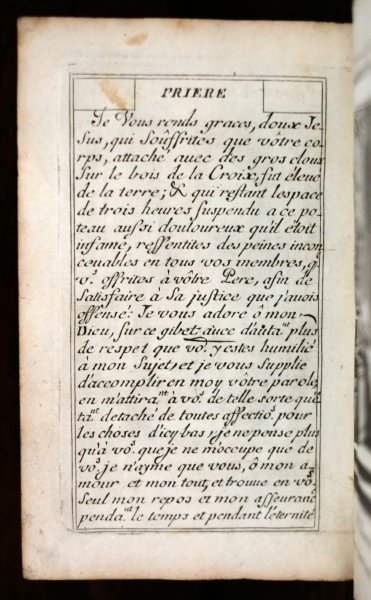 PRIERE
Je Vous rends graces, doux Je-
sus, qui Souffrites que vôtre co-
rps, attaché auec des gros cloux
Sur le bois de la Croix, fut éleué
de la terre; & qui restant lespace
de trois heures suspendu a ce po-
teau aussi douloureux qu'il étoit
infame, ressentites des peines incon
ceuables en tous vos membres, q
v.s offrites à vôtre Pere, afin de
Satisfaire à Sa justice que j'auois
offensé: Je vous adore ô mon
Dieu, sur ce gibet auec d'auta.nt plus
de respet que vo.s y estes humilié
a mon Sujet, et je vous Supplie
d'accomplir en moy votre parole,
en m'attira.nt à vo.s de telle sorte qu'é
ta.nt detaché de toutes affectio.s pour
les choses d'icy bas, je ne pense plus
qu'à vo.s que je ne m'occupe que de
vo.s je n'ayme que vous, ô mon a-
mour et mon tout, et trouue en vo.s
Seul mon repos et mon asseurance
penda.nt le temps et pendant l'eternité